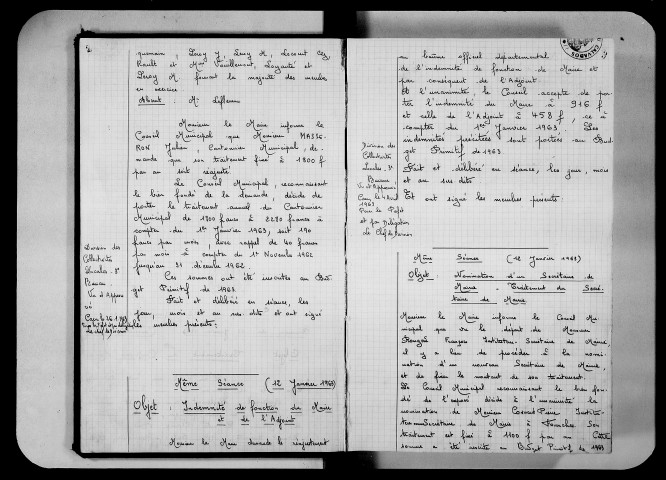 2
quemain, Leroy Y, Leroy M, Lecourt
Rault et Mrs Vaillement, Layauté et
Leroy M. formant la majorité des membres
en exercice
Absent : Mr Lefèvre
Monsieur le Maire informe le
Conseil Municipal que Monsieur MASSE-
RON Julien, Cantonnier Municipal, de-
mande que son traitement fixé à 1800 f
par an soit réajusté
Le Conseil Municipal, reconnaissant
le bien fondé de la demande, décide de
porter le traitement annuel du Cantonnier
Municipal de 1800 francs à 2280 francs à
compter du 1er Janvier 1963, soit 190
francs par mois, avec rappel de 40 francs
par mois à compter du 1er Novembre 1962
jusqu'au 31 décembre 1962.
Ces sommes ont été inscrites au Bud-
get Primitif de 1963
Fait et délibéré en séance, les
jour, mois et an sus dits et ont signé
les membres présents :
Division des
Collectivités
Locales - 3e
Bureau
Vu et Approu
vé
Même Séance (12 Janvier 1963)
Objet : Indemnité de fonction du Maire
et de l'Adjoint
Monsieur le Maire demande le réajustement
au barème officiel départemental
de l'indemnité de fonction du Maire et
par conséquent de l'Adjoint
A l'unanimité, le Conseil accepte de por-
ter l'indemnité du Maire à 916 f
et celle de l'Adjoint à 458 f, ce à
compter du 1er Janvier 1963. Les
indemnités précitées sont portées au Bud-
get Primitif de 1963.
Fait et délibéré en séance, les jour, mois
et an sus dits
Et ont signé les membres présents
Division des
Collectivités
Locales - 3e
Bureau
Vu et Approuvé
Caen, le 4 Avril
1963
Pour le Préfet
et par Délégation
Le Chef de Division
CALVADOS
Même Séance (12 Janvier 1963)
Objet : Nomination d'un Secrétaire de
Mairie - Traitement du Secré-
taire de Mairie.
Monsieur le Maire informe le Conseil Mu-
nicipal que vu le départ de Monsieur
François Instituteur-Secrétaire de Mairie,
il y a lieu de procéder à la nomi-
nation d'un nouveau Secrétaire de Mairie,
et de fixer le montant de son traitement.
Le Conseil Municipal reconnaissant le bien fon-
dé de l'exposé décide à l'unanimité la
nomination de Monsieur Pierre Institu-
teur-Secrétaire de Mairie à Son
traitement est fixé à 1100 f par an Cette
somme a été inscrite au Budget Primitif de 1963